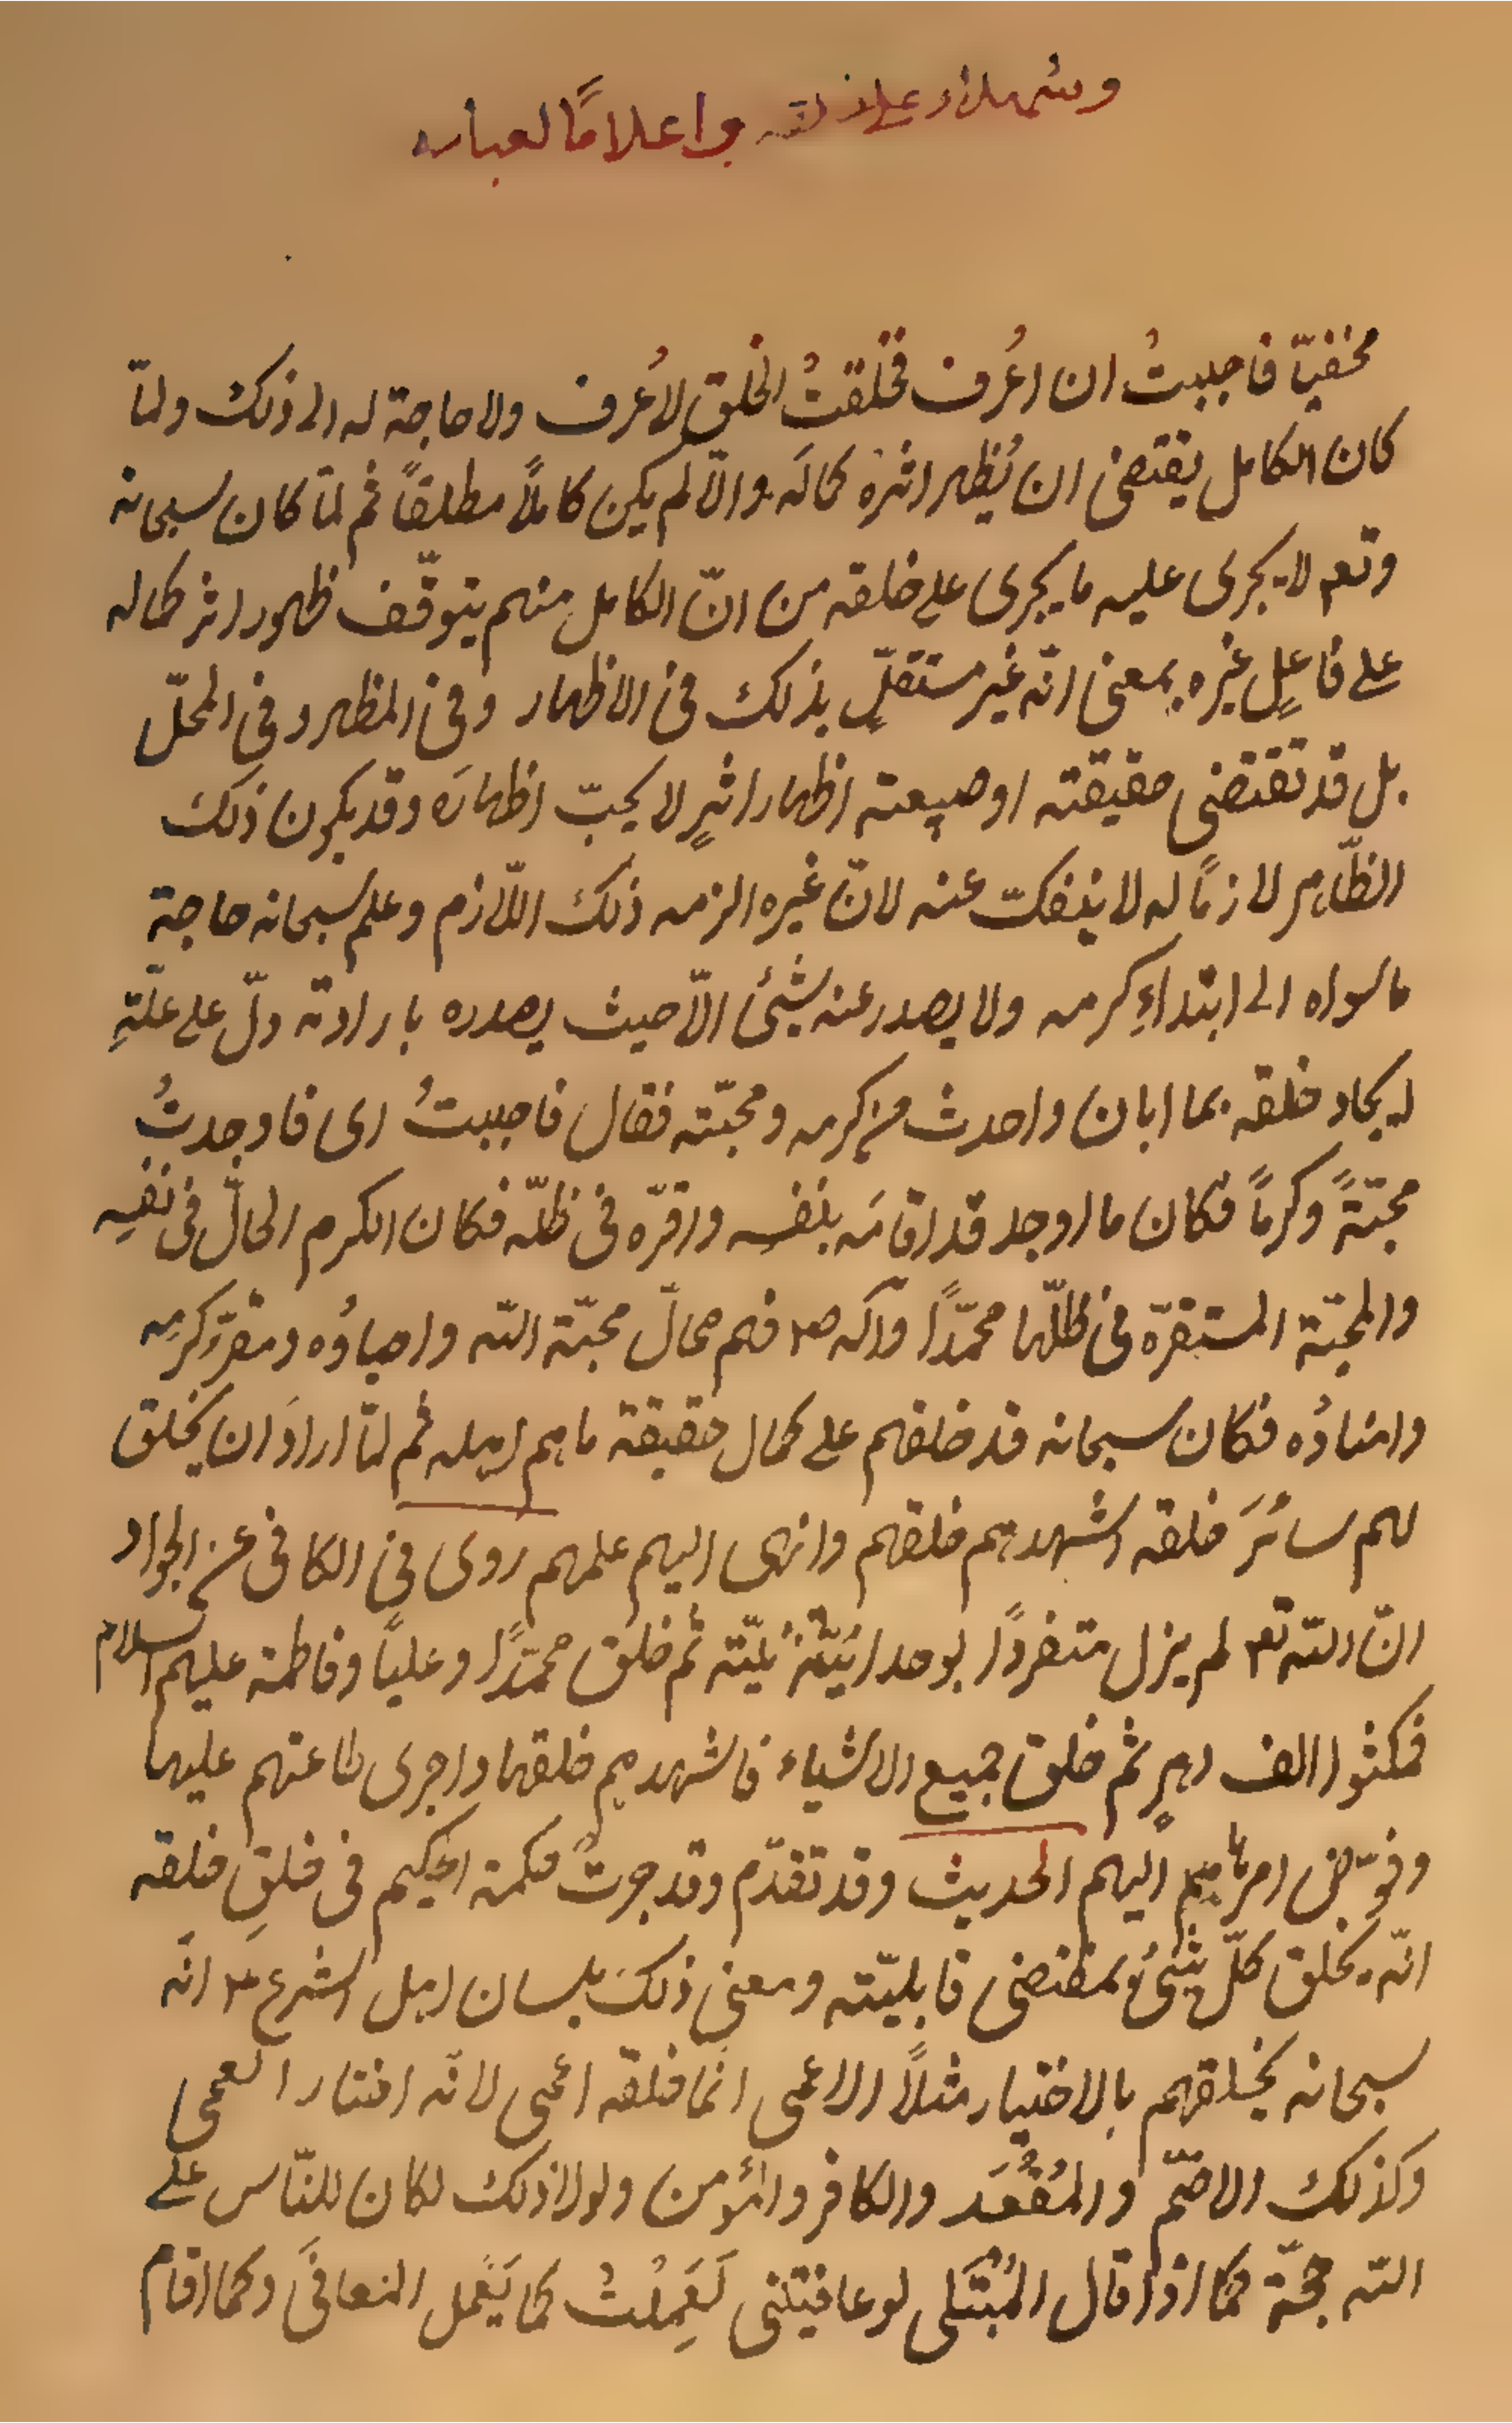 وشهداء على خلقه واعلامًا لعباده
مخفيّا فاحببتُ ان اعُرف فخلقتُ الخلق لاُعرف ولا حاجة له الى ذلك ولمّا
كان الكامل يقتضى ان يُظهر اثرهُ كمالَه والّا لم يكن كاملًا مطلقاً ثم لمّا كان سبحانه
وتعم لا يجرى عليه ما يجرى على خلقه من انّ الكامل منهم يتوقّف ظهور اثر كماله
على فاعلٍ غيره بمعنى انّه غير مستقلٍّ بذلك فى الاظهار وفى المظهر وفى المحلّ
بل قد تقتضى حقيقته او طبيعته اظهار اثرٍ لا يحبّ اظهارَه وقد يكون ذلك
الظّاهر لازمًا له لا ينفكّ عنه لانّ غيره الزمه ذلك اللّازم وعلم سبحانه حاجة
ما سواه الى ابتداءِ كرمه ولا يصدر عنه شيئ الّا حيث يصدره بارادته دلّ على علّةِ
ايجاد خلقه بما ابان واحدث من كرمه ومحبّته فقال فاحببتُ اى فاوجدتُ
محبّةً وكرماً فكان ما اوجد قد اقامَه بنفسه واقرّه فى ظلّه فكان الكرم الحالّ فى نفسِه
والمحبّة المستقرّة فى ظلّها محمّدًا وآله ص٢ فهم محالّ محبّة اللّه واحباؤُه ومقرّ كرمِه
وامناؤُه فكان سبحانه قد خلقهم على كمال حقيقة ما هم اهله ثم لمّا ارادَ ان يخلق
لهم سائرَ خلقه اشهدهم خلقهم وانهى اليهم علمهم روى فى الكافى عن الجواد
انّ اللّه تع٢ لم يزل متفردًا بوحدانيّته ثم خلق محمّدًا وعليًا وفاطمة عليهم السلام
فمكثوا الف دهرٍ ثم خلق جميع الاشياء فاشهدهم خلقها واجرى طاعتهم عليها
وفوّض امرها اليهم الحديث وقد تقدّم وقد جرتْ حكمة الحكيم فى خلقِ خلقه
انّه يخلق كلّ شيئٍ بمقتضى قابليّته ومعنى ذلك بلسان اهل الشرع ع٢ انّه
سبحانه يخلقهم بالاختيار مثلًا الاعمى انما خلقه اعمى لانّه اختار العمى
وكذلك الاصّم والمُقْعَد والكافر والمؤمن ولولا ذلك لكان للنّاس على
اللّه حجّة فكما اذا قال المُبْتَلى لو عافيتنى لَعَمِلْتُ كما يَعْمل المعافَى وكما اقام